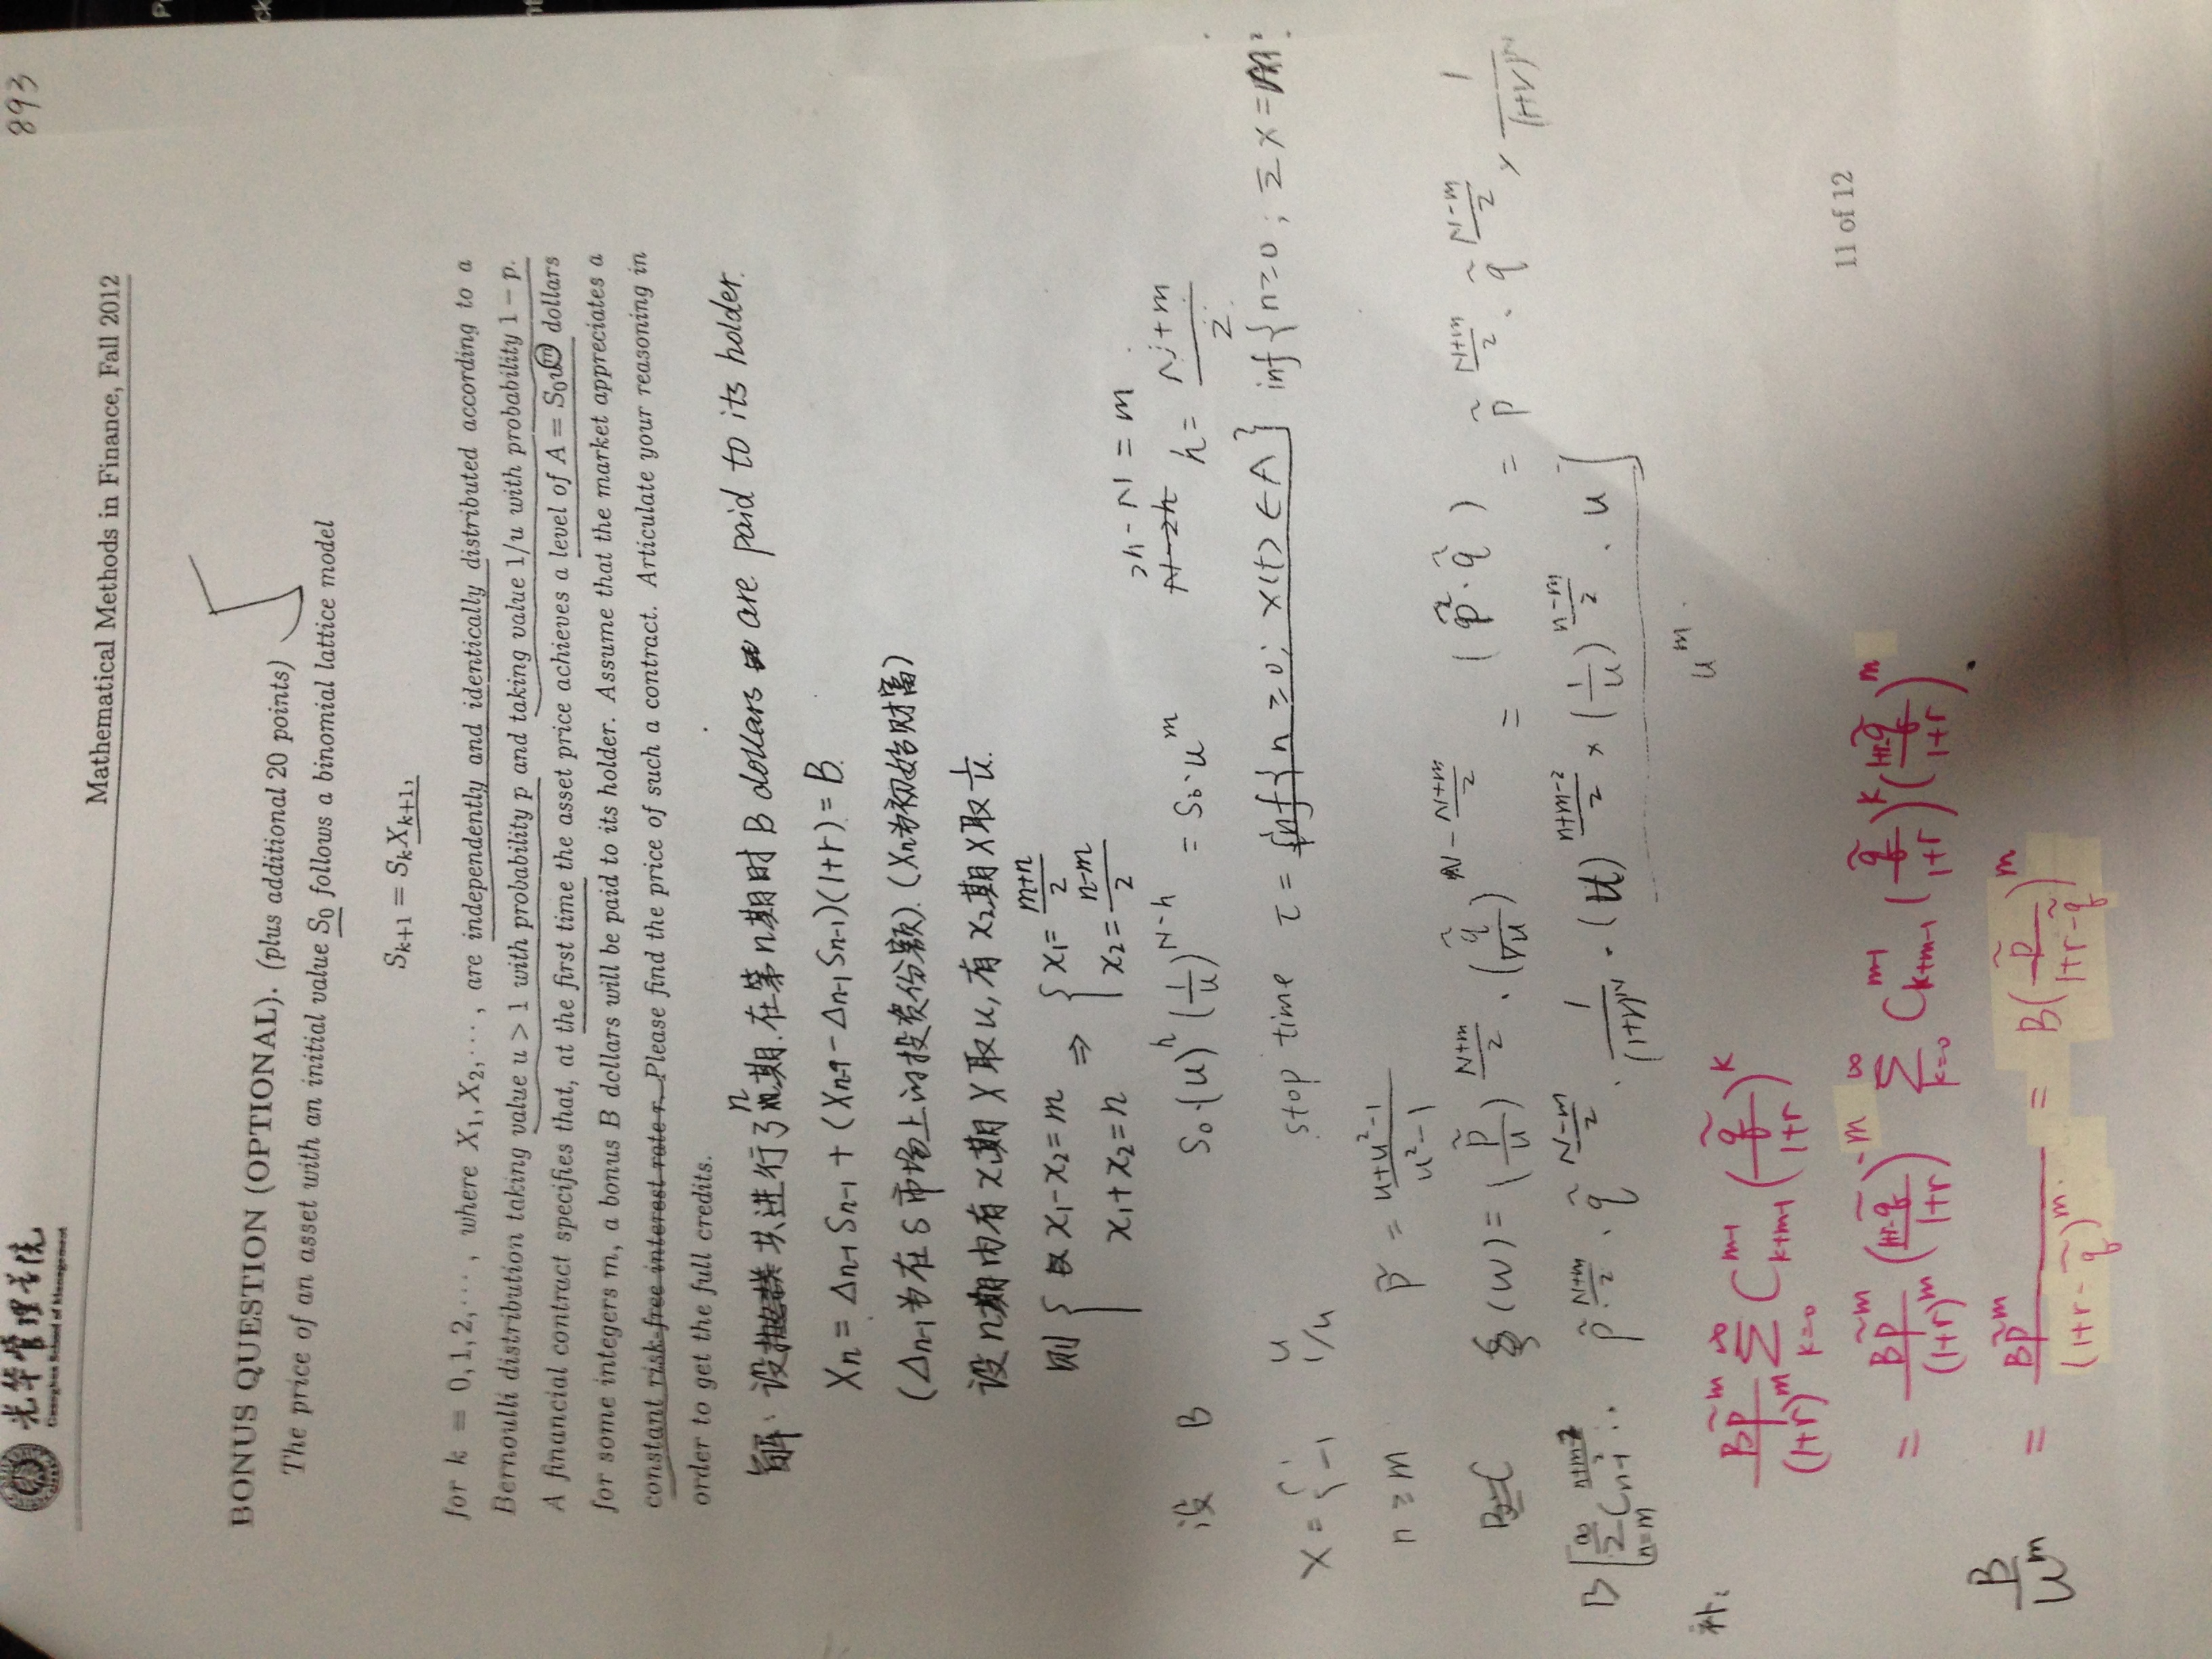 893
光华管理学院
Guanghua School of Management
Mathematical Methods in Finance, Fall 2012
BONUS QUESTION (OPTIONAL). (plus additional 20 points) 5
The price of an asset with an initial value S₀ follows a binomial lattice model
Sₖ₊₁ = SₖXₖ₊₁,
for k = 0, 1, 2, ⋯ , where X₁, X₂, ⋯ , are independently and identically distributed according to a
Bernoulli distribution taking value u > 1 with probability p and taking value 1/u with probability 1 − p.
A financial contract specifies that, at the first time the asset price achieves a level of A = S₀uᵐ dollars
for some integers m, a bonus B dollars will be paid to its holder. Assume that the market appreciates a
constant risk-free interest rate r. Please find the price of such a contract. Articulate your reasoning in
order to get the full credits.
解: 设 共进行了n期. 在第n期时 B dollars are paid to its holder.
Xn = Δn-1 Sn-1 + (Xn-1 - Δn-1 Sn-1)(1+r) = B.
(Δn-1为在S市场上的投资份额). (Xn为初始财富)
设n期内有x₁期X取u, 有x₂期X取1/u.
则 { x₁-x₂=m ⇒ { x₁= (m+n)/2
x₁+x₂=n x₂= (n-m)/2
2h-N = m
设 B S₀·(u)^h (1/u)^(N-h) = S₀·u^m N-2h h= (N+m)/2
X = { 1 u
-1 1/u
stop time τ = inf{n ≥ 0; X(t) ∈ A} inf{n≥0; Σx=m}
n ≥ m p̃ = (u+u²-1)/(u²-1)
ξ(w) = (p̃/u)^((N+m)/2) · (q̃/(1/u))^(N-(N+m)/2) = (p̃·q̃) = p̃^((N+m)/2) · q̃^((N-m)/2) × 1/(1+r)^N
B[Σ_(n=m)^∞ C_(n-1)^((n+m-2)/2) · p̃^((N+m)/2) · q̃^((N-m)/2) · 1/(1+r)^N · (u)^((n+m-2)/2) × (1/u)^((n-m)/2) · u]
u^m
补:
Bp̃^m/(1+r)^m Σ_(k=0)^∞ C_(k+m-1)^(m-1) (q̃/(1+r))^k
= Bp̃^m/(1+r)^m ((1+r-q̃)/(1+r))^(-m) Σ_(k=0)^∞ C_(k+m-1)^(m-1) (q̃/(1+r))^k ((1+r-q̃)/(1+r))^m
B/u^m = Bp̃^m/(1+r-q̃)^m = B(p̃/(1+r-q̃))^m
11 of 12